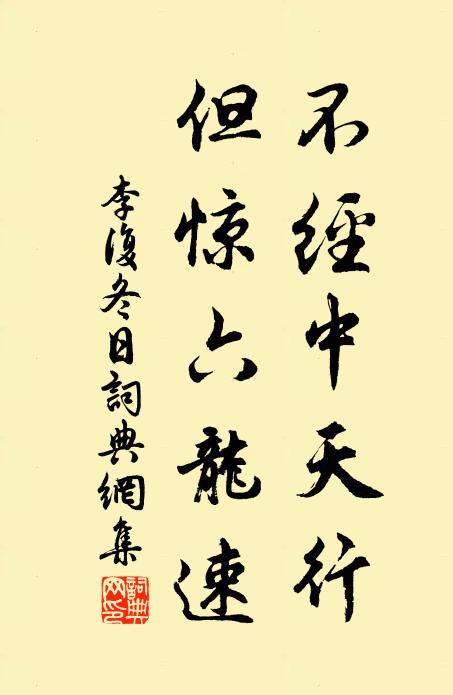 不經中天行
但惊六龍速
李復冬日詞典網集
詞典网印